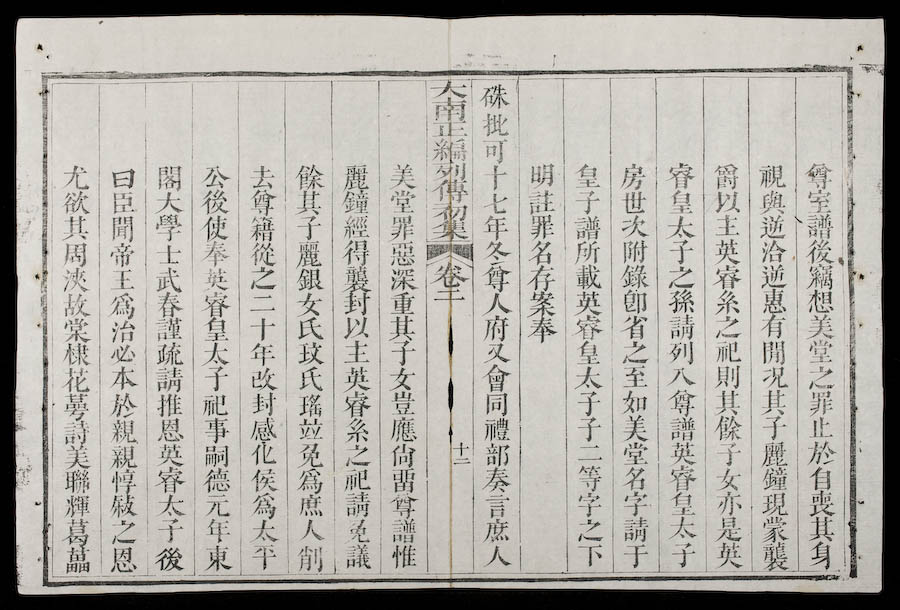 尊室譜後竊想美堂之罪止於自喪其身
視與逆洽逆惠有間况其子麗鐘現蒙襲
爵以主英睿系之祀則其餘子女亦是英
睿皇太子之孫請列入尊譜英睿皇太子
房世次附錄卽省之至如美堂名字請于
皇子譜所載英睿皇太子子二等字之下
明註罪名存案奉
硃批可十七年冬尊人府又會同禮部奏言庶人
大南正編列傳初集 卷二 十二
美堂罪惡深重其子女豈應尙畱尊譜惟
麗鐘經得襲封以主英睿系之祀請免議
餘其子麗銀女氏玟氏瑤竝免爲庶人削
去尊籍從之二十年改封感化侯爲太平
公後使奉英睿皇太子祀事嗣德元年東
閣大學士武春謹疏請推恩英睿太子後
曰臣聞帝王爲治必本於親親惇敍之恩
尤欲其周浹故棠棣花萼詩美聯輝葛藟